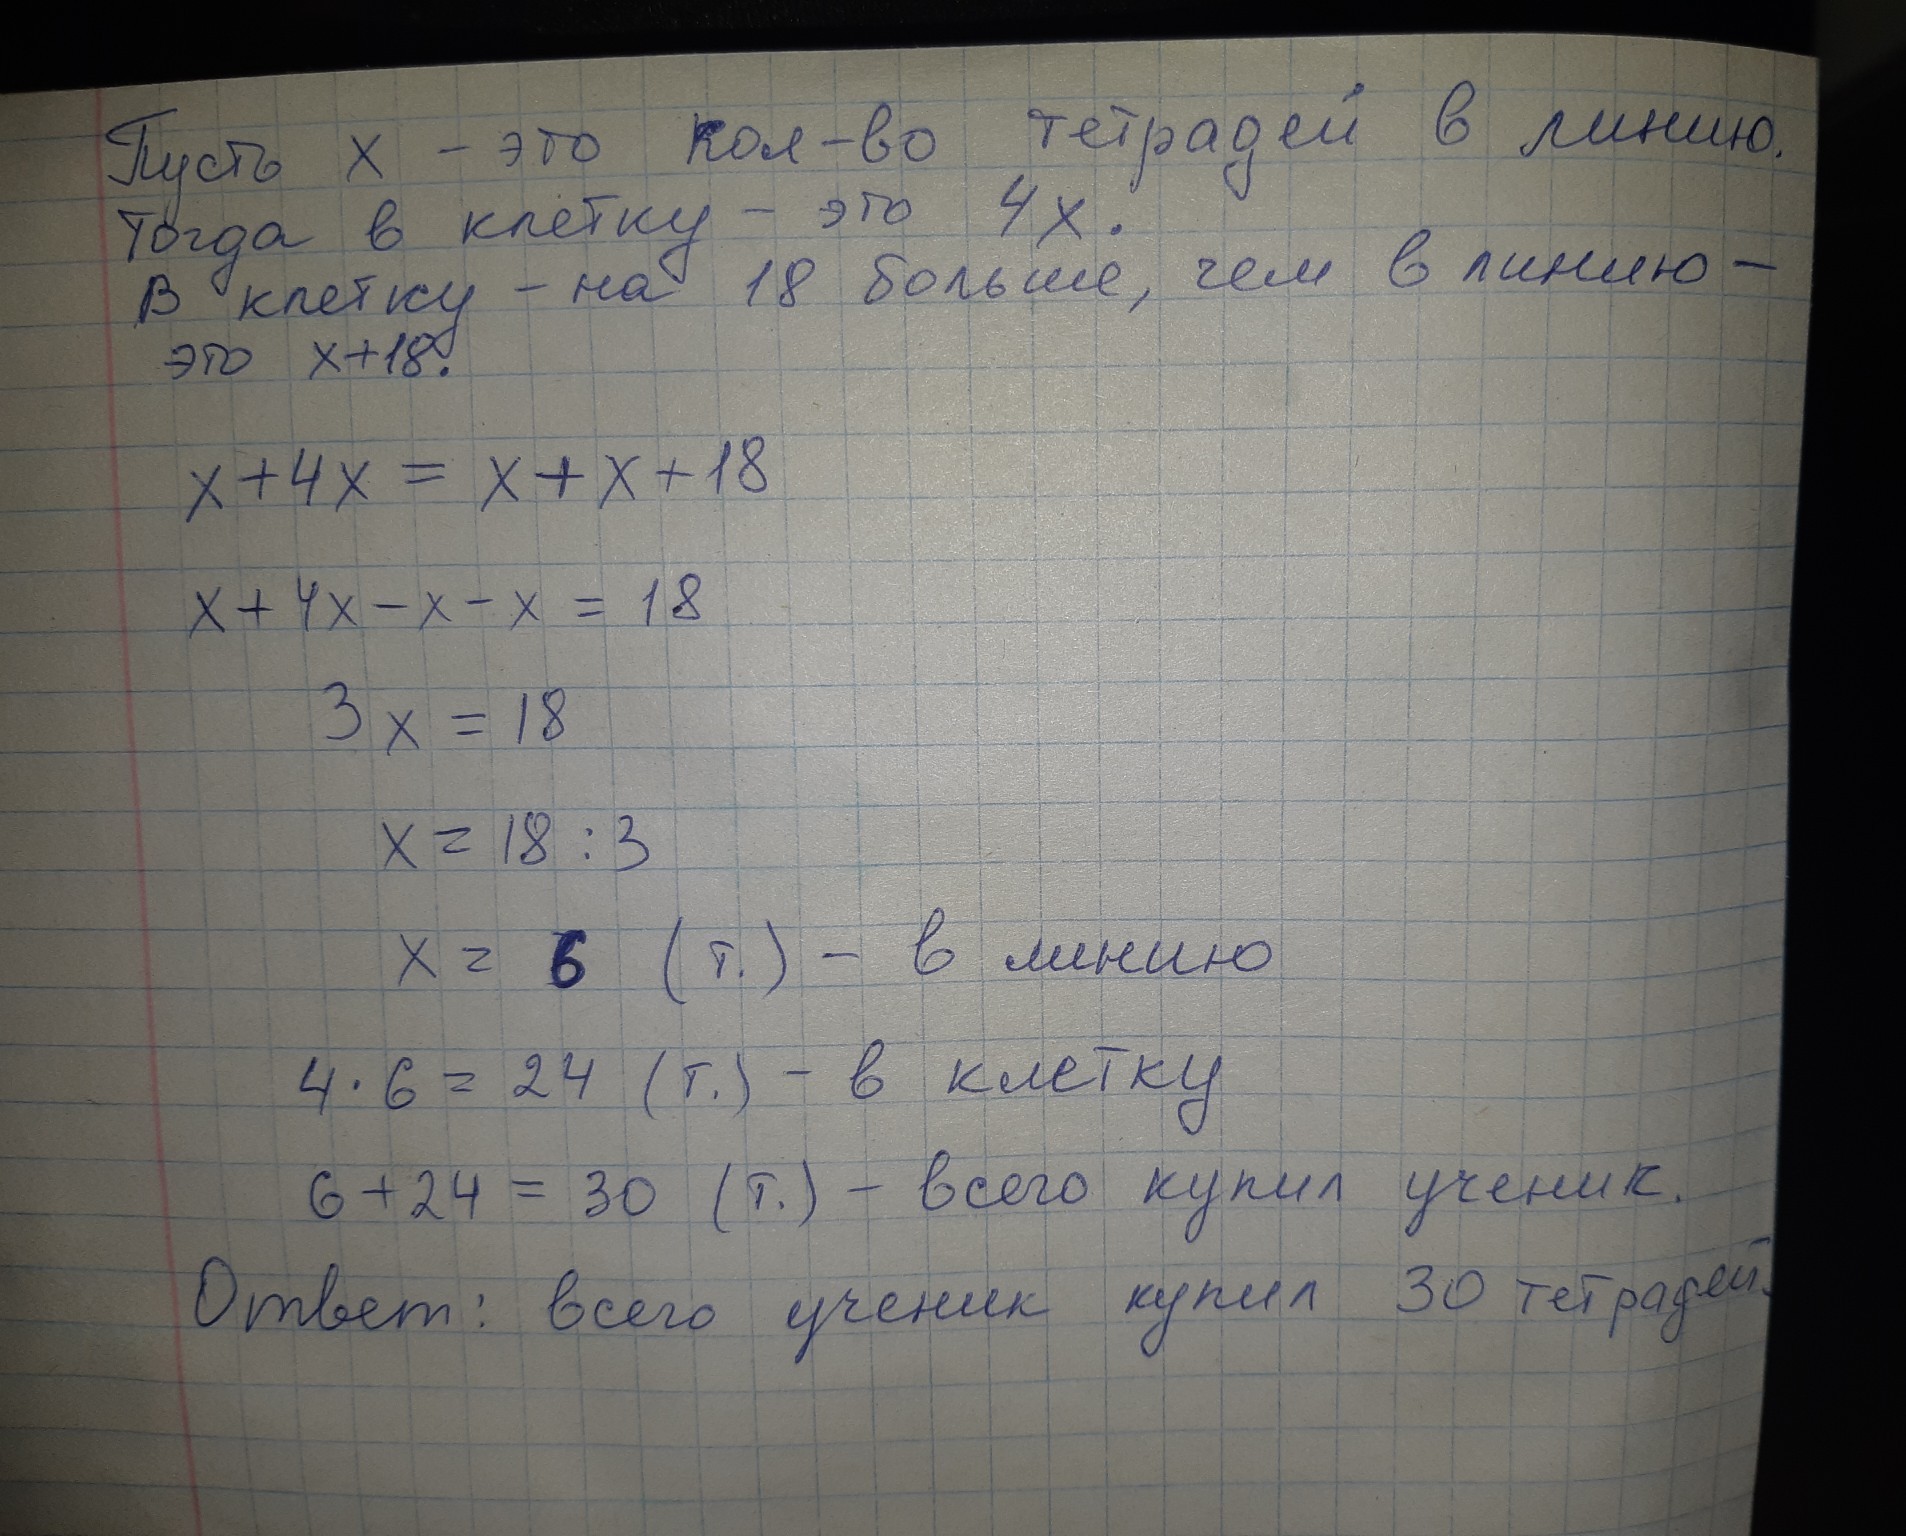 Пусть х - это кол-во тетрадей в линию.
Тогда в клетку - это 4х.
В клетку - на 18 больше, чем в линию -
это х+18.
х+4х = х+х+18
х+4х-х-х = 18
3х = 18
х = 18 : 3
х = 6 (т.) - в линию
4·6 = 24 (т.) - в клетку
6+24 = 30 (т.) - всего купил ученик.
Ответ: всего ученик купил 30 тетрадей.